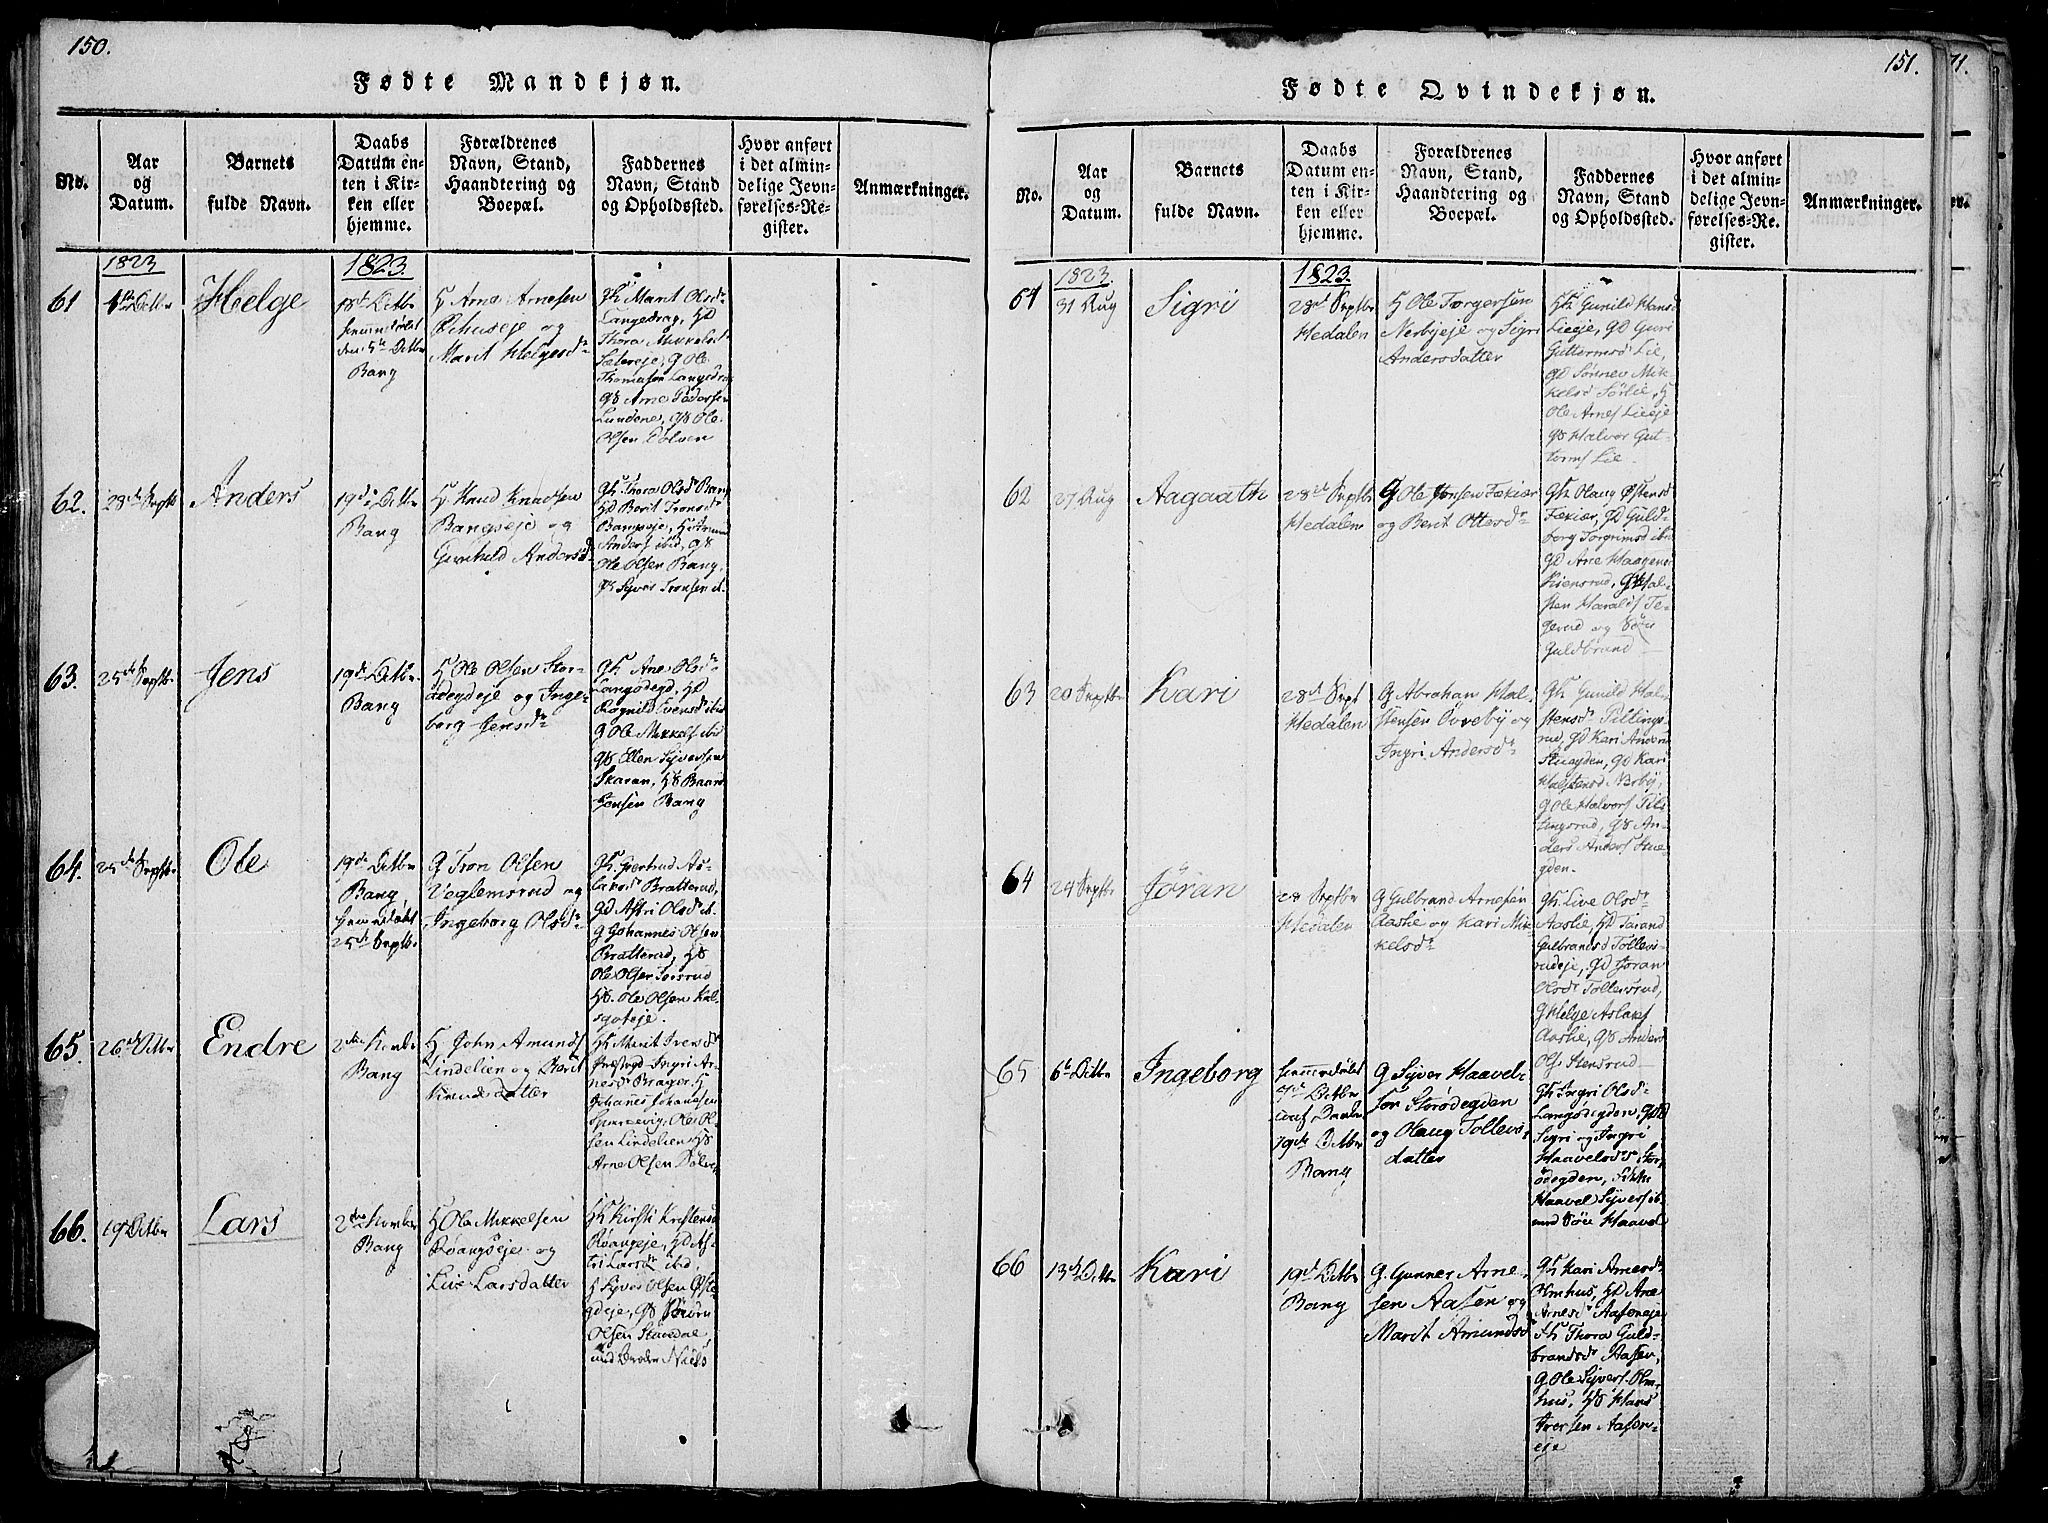 150.
Fødte Mandkjøn.
No.
Aar
og
Datum.
Barnets
fulde Navn.
Daabs
Datum en-
ten i Kir-
ken eller
hjemme.
Forældrenes
Navn, Stand,
Haandtering og
Boepæl.
Faddernes
Navn, Stand
og Opholdssted.
Hvor anført
i det almin-
delige Jevn-
førelses-Re-
gister.
Anmærkninger.
1823
1823.
61
Helge
18de Octbr
den 5te Octbr
Bang
H Arne Arnesen
og
Marit Helgesdr
Gk Marit Olsdr
Langedrag, HD
Thora Mikkelsd
Sætereje, G Ole
Thomasen Langedrag
G8 Arne Pedersen
Lundene, G8 Ole
Olsen Dølven
62.
28de Septb
Anders
19de Octbr
Bang
H Knud Knudsen
Bangseje og
Gunhild Andersd
Gk Thora Olsd Bang
HD Berit Tronsdr
Bangseje, H Amund
Anders ibid, G8
Ole Olsen Bang,
G8 Syver Tronsen ib.
63.
25de Septbr
Jens
19de Octbr
Bang
H Ole Olsen Stor-
ødegdeje og Inge-
borg Jensdr
Gk Ane Olsdr
Langødegd, HD
Ragnild Ivensd ibid
G Ole Mikkels ibid
G8 Ellen Syversen
Skaran, H8 Baard
Jensen Bang
64.
25de Septbr
Ole
19de Octbr
Bang,
25de Septbr
G Tron Olsen
Veglemsrud og
Ingeborg Olsdr
Gk Gjertrud As-
laksdr Bratterud,
GD Astri Olsdr ib.
G Johannes Olsen
Bratterud, H8
Ole Olsen Ivesrud
H8. Ole Olsen Kal-
sgoteje.
65.
26de Octbr
Endre
2den Novbr
Bang
H John Amunds
Lindelien og Berit
Knudsdatter
Hk Marit Iversdr
Ingri Ar-
nesdr Brager, H
Johanes Johanesen
Sparrevig, Ole Ol-
sen Lindelien, H8
Arne Olsen Dølve
66.
19de Octbr
Lars
2den Novbr
Bang
H Ole Mikkelsen
Røangseje og
Live Larsdatter
Hk Kirsti Kristensd
Røangeje, HD As-
tri Larsdr ibid,
H Syver Olsen Øste-
gdeje, G8
Olsen Stavedal,
Niels
151.
Fødte Qvindekjøn.
No.
Aar
og
Datum.
Barnets
fulde Navn.
Daabs
Datum en-
ten i Kir-
ken eller
hjemme.
Forældrenes
Navn, Stand,
Haandtering og
Boepæl.
Faddernes
Navn, Stand
og Opholdssted.
Hvor anført
i det almin-
delige Jevn-
førelses-Re-
gister.
Anmærkninger.
1823.
1823.
61
31 Aug
Sigri
28de Septbr
Hedalen
H Ole Torgersen
Nerbyeje og Sigri
Andersdatter
Hk Gunild Hansd
Lieeje, GD Guri
Guttormsd Lie,
GD Sønnev Mik-
kelsd Sørlie, H
Ole Arnes Lieeje
G8 Halvor Gut-
torms Lie.
62
27 Aug
Aagaath
28de Septbr
Hedalen
G Ole Jonsen Fækjær
og Berit Ottesdr
Gk Olaug Østensd
Fækjær, GD Guld-
borg Torgrimsd ibid
GD Ane Haagens
Kiensrud, G Hal-
sten Haralds Te-
gerud og Søn
Guldbrand
63
20 Septbr
Kari
28de Sept
Hedalen
G Abraham Hal-
stensen Øvreby og
Ingri Andersdr
Gk Gunild Hal-
stensdr Pillings-
rud, GD Kari Andersd
Stuegden, GD Kari
Halstensd Nerby,
G Ole Halvors Pil-
lingsrud, G8 An-
ders Anders Stue-
gden.
64
24 Septbr
Jøran
28 Septbr
Hedalen
G Gulbrand Arnesen
Aaslie og Kari Mik-
kelsdr
Gk. Live Olsdr
Aaslie, HD Jarand
Gulbrandsd Tollevs-
rudeje, GD Jøran
Olsdr Tollevsrud,
G Helge Aslaks
Aaslie, G8 Anders
Ols Stensrud
65
6te Octbr
Ingeborg
7de Octbr
19de Octbr
Bang
G Syver Haavel-
sen Storødegden
og Olaug Tollevs-
datter
Gk Ingri Olsdr
Langødegden, GD
Sigri og Ingri
Haavelsdr Stor-
ødegden,
Haavel Syvers ib.
med Søn Haavel
66
13de Octbr
Kari
19de Octbr
Bang
G. Gunner Arne-
sen Aasen og
Marit Amundsd
Gk Kari Arnesdr
Olmhus, HD Ane
Arnesdr Aaseneje
Thora Guld-
brandsdr Aasen,
G Ole Syvers. Olm-
hus, H8 Hans
Iversen Aasen-
eje